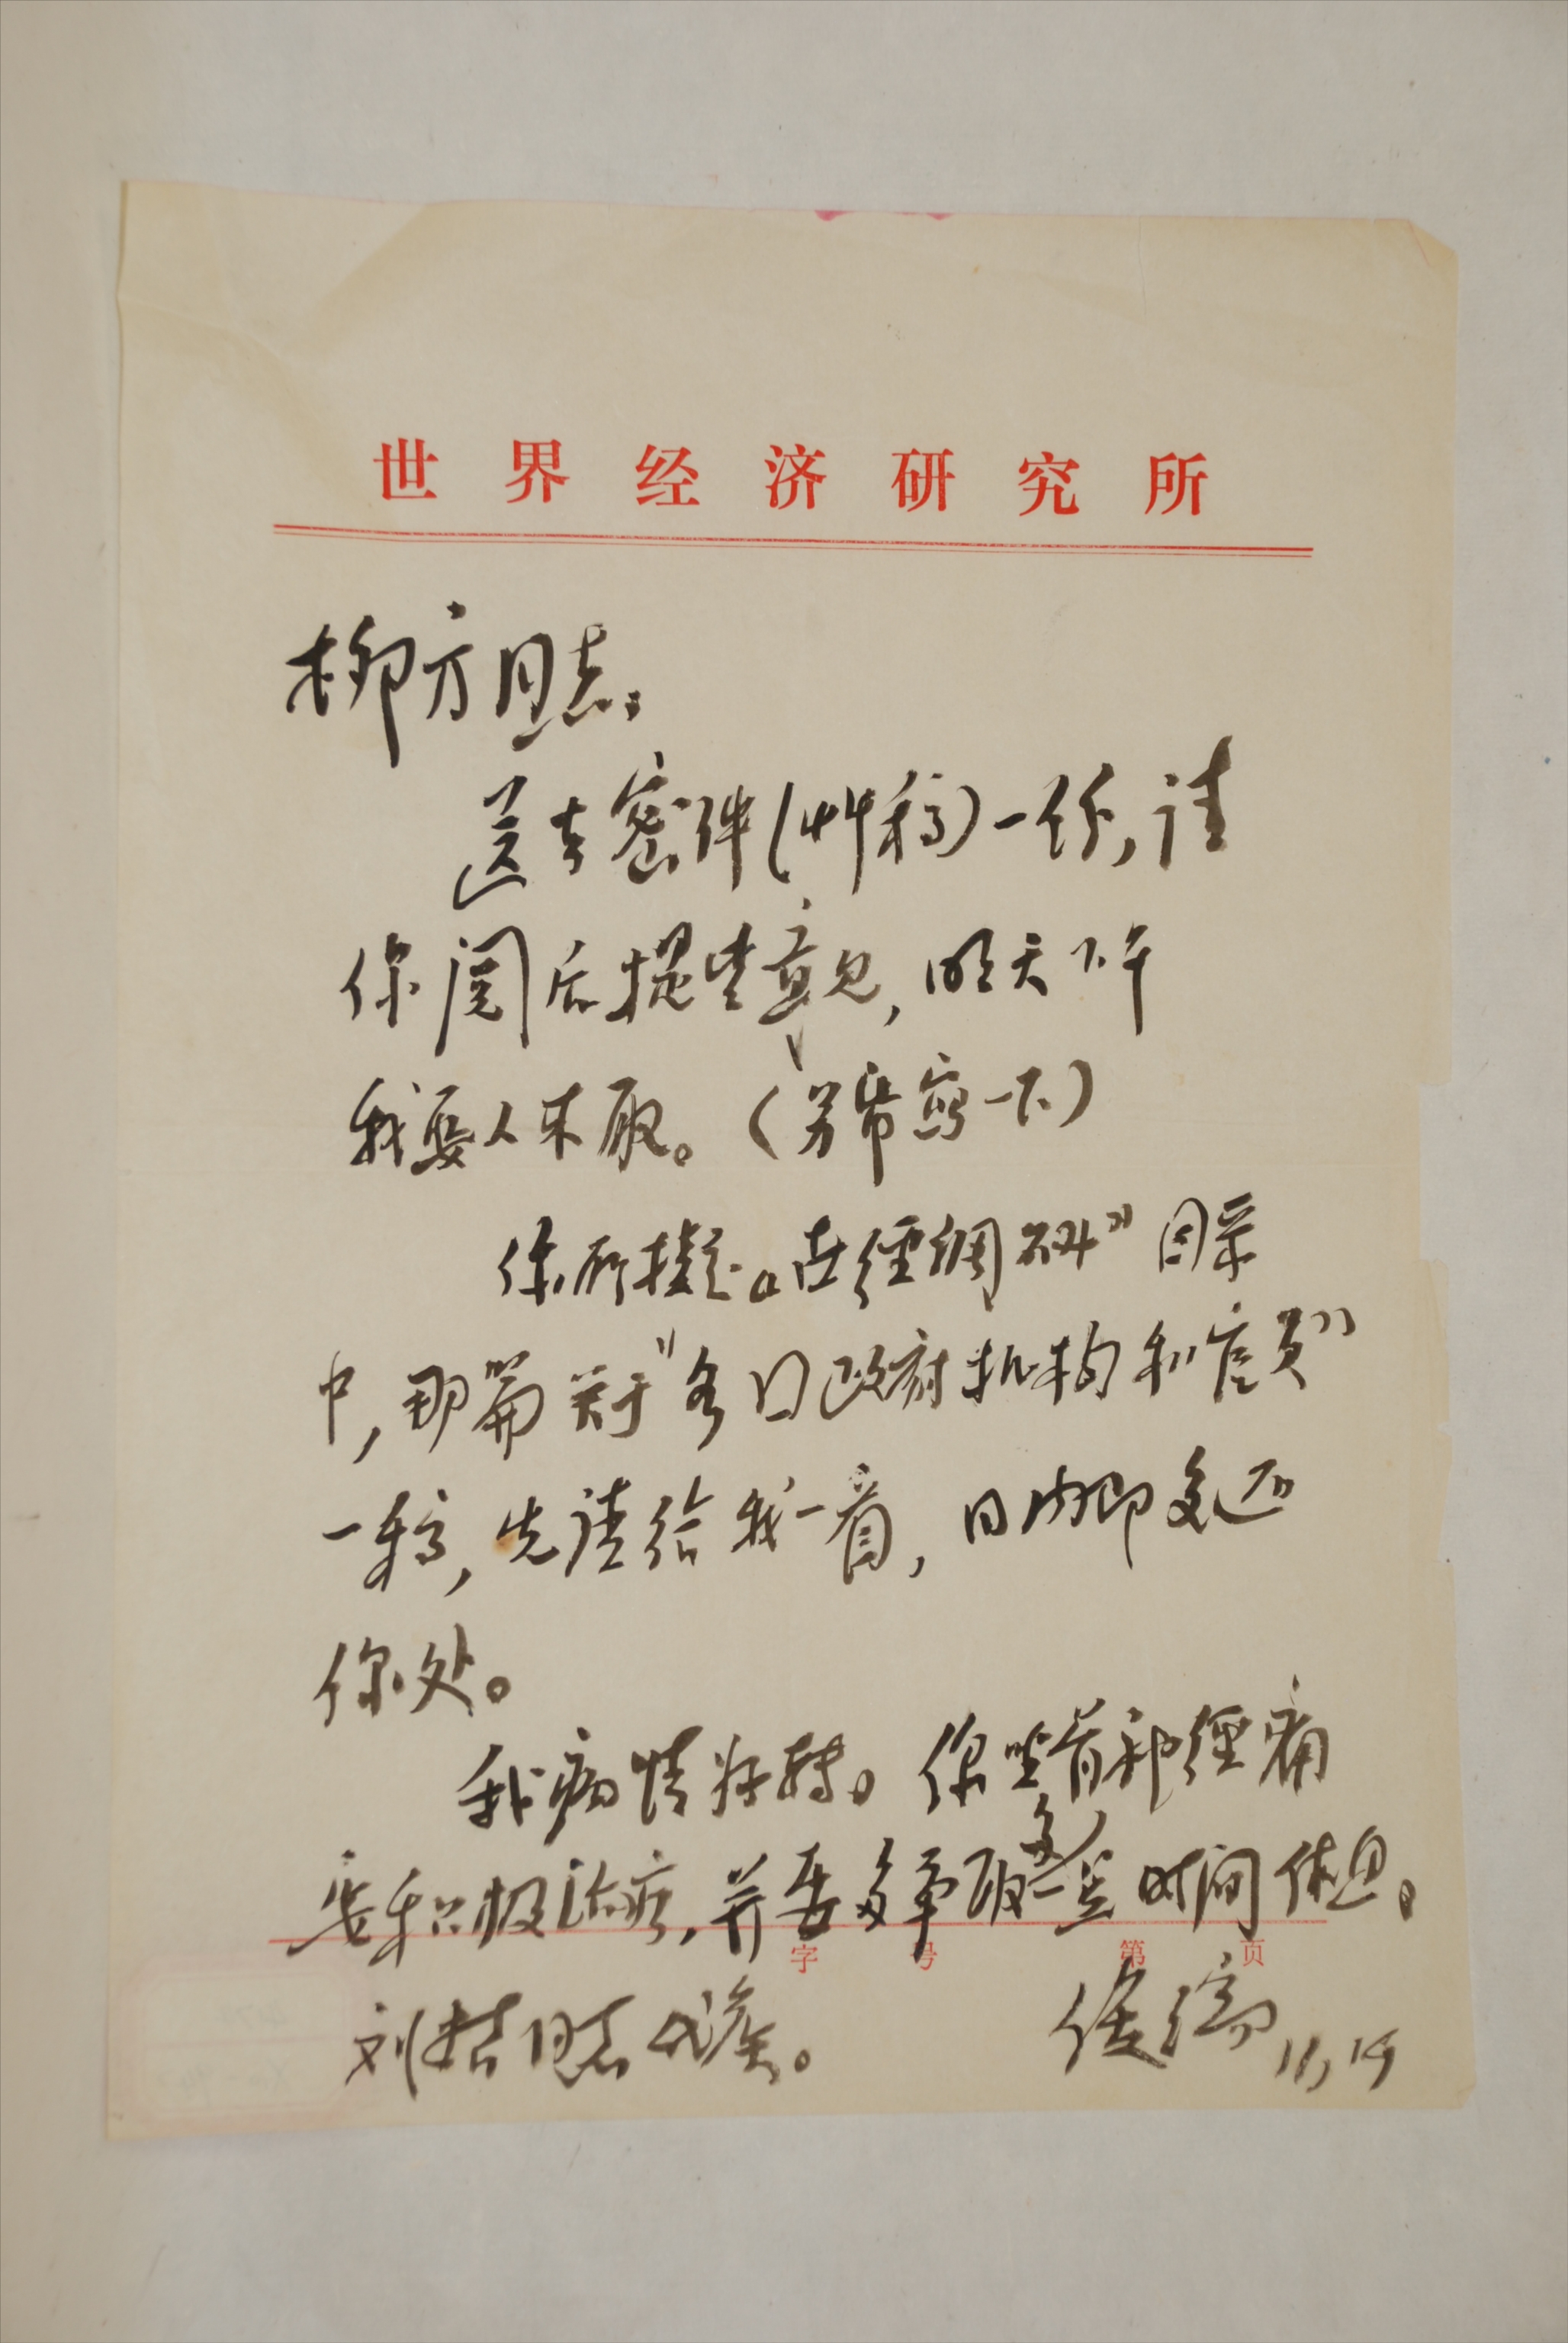 世界经济研究所
柳方同志：
送去密件(草稿)一份，请
你阅后提些意见，明天下午
我要人来取。（另带写一下）
你所拟“世经调研”目录
中，那篇关于“各国政府机构和官员”
一稿，先请给我一看，日内即交还
你处。
我病情好转。你坐骨神经痛
要积极治疗，并要多争取一些时间休息。
字 号 第 页
刘喆同志代候。
侯 11,14